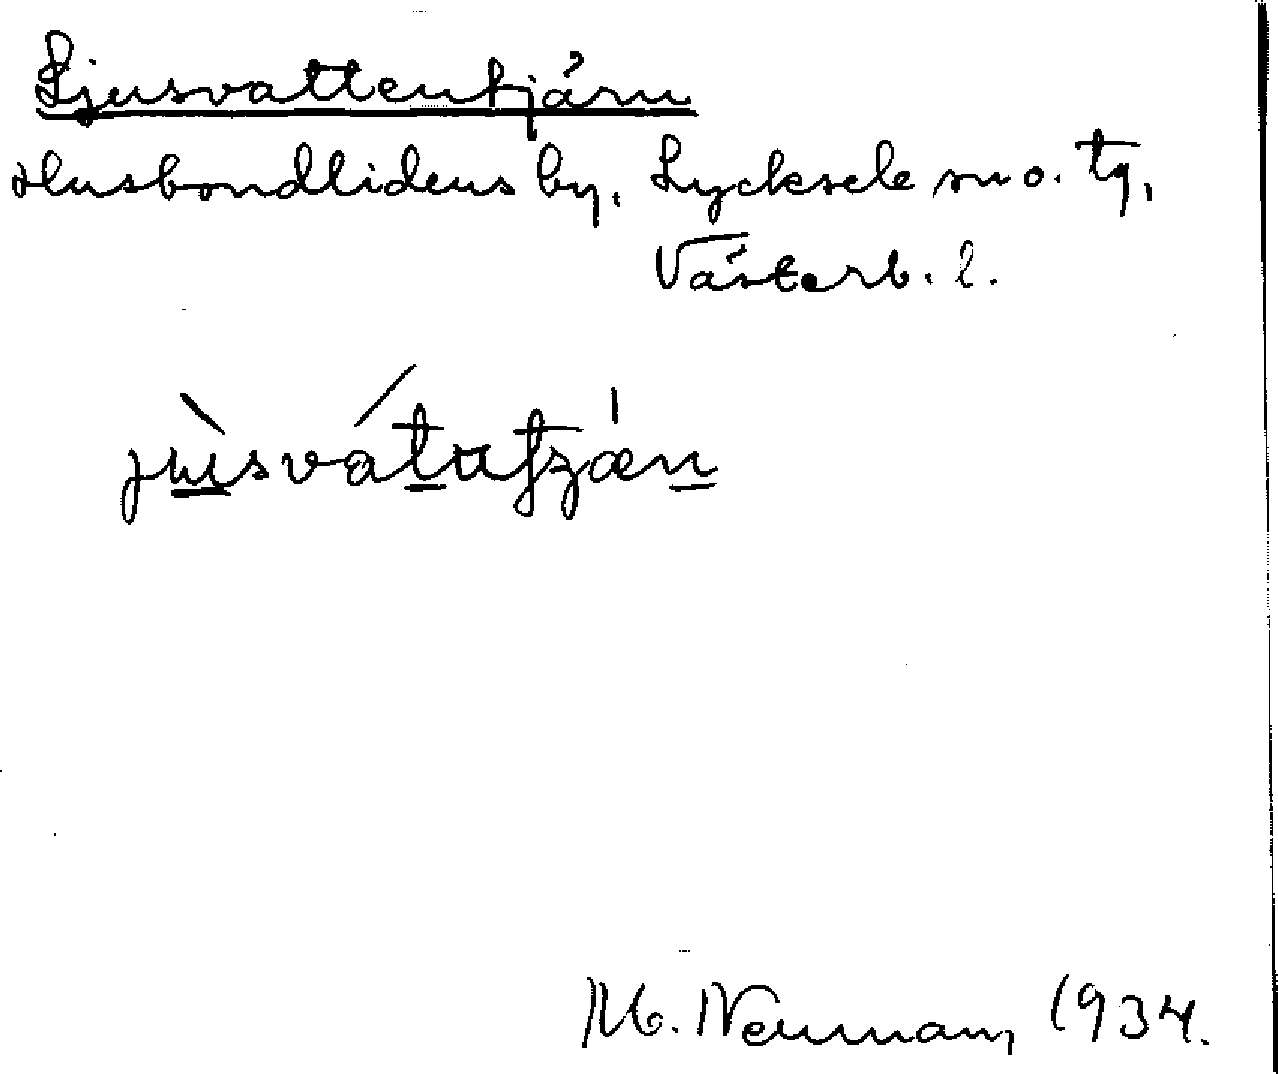 Ljusvattentjärn
Husbondlidens by, Lycksele sn o. tg,
Västerb. l.
M. Neuman, 1934.